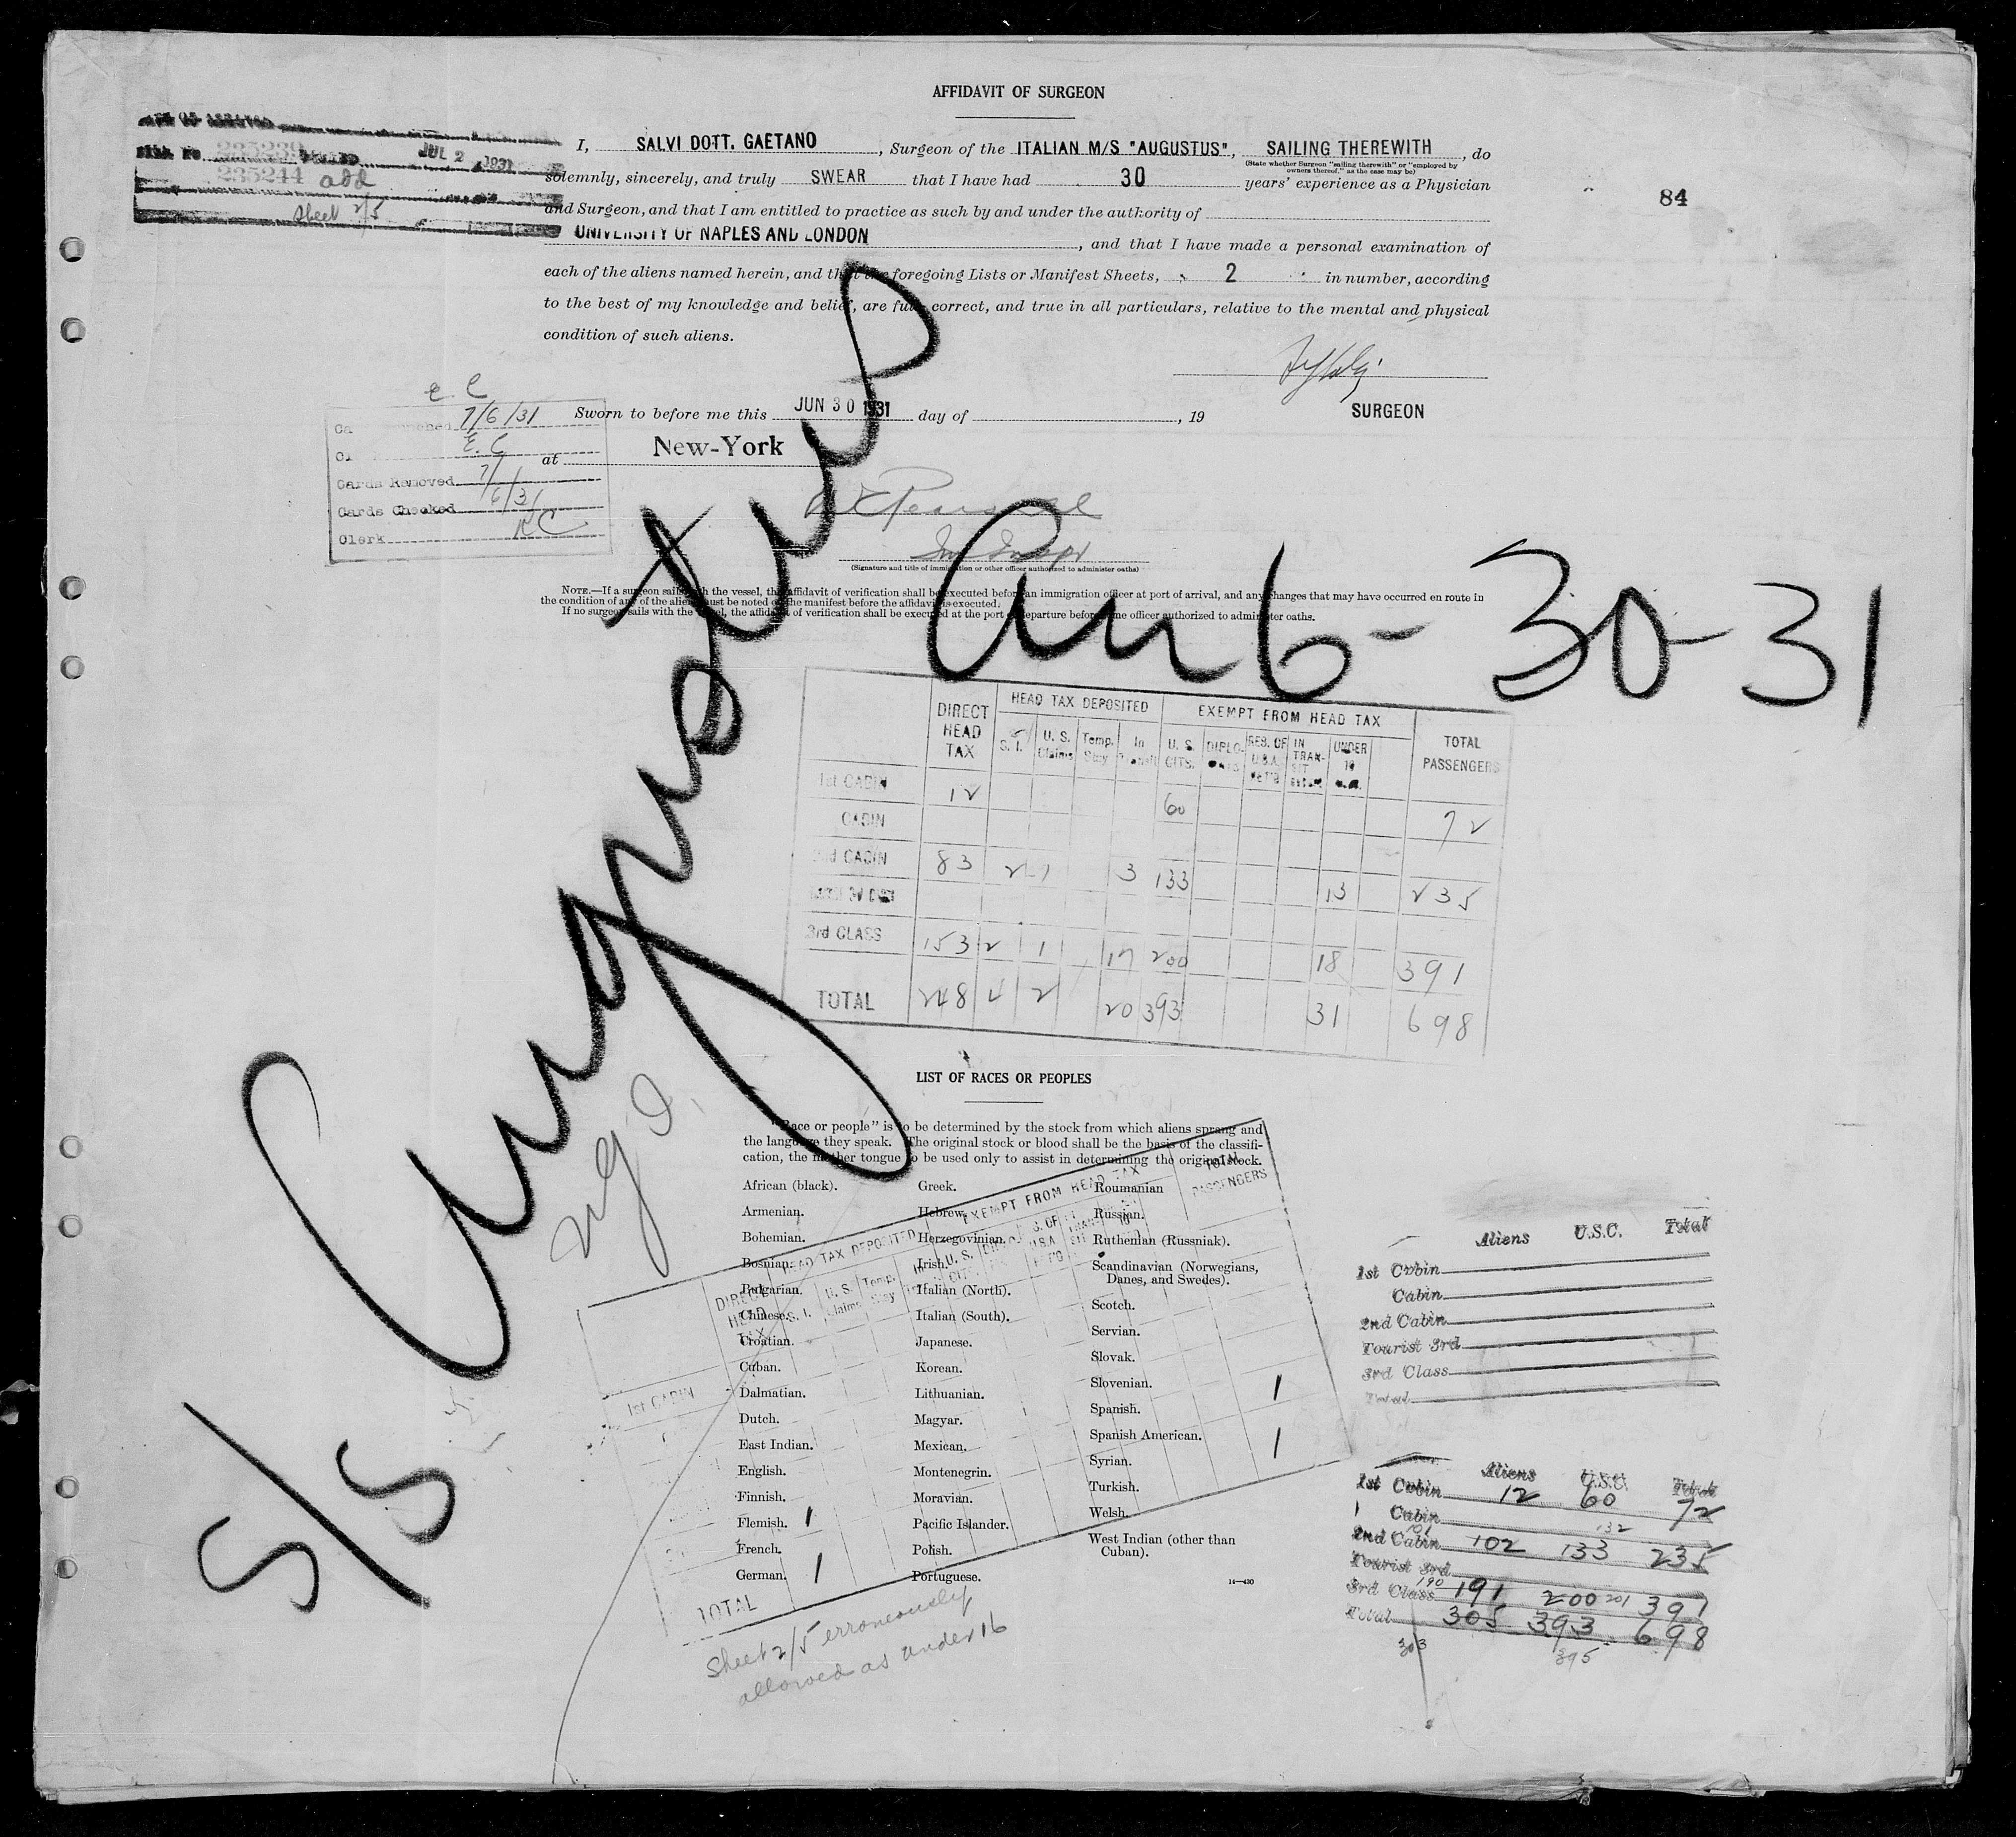 AFFIDAVIT OF SURGEON
I, SALVI DOTT. GAETANO, Surgeon of the ITALIAN M/S "AUGUSTUS", SAILING THEREWITH, do
(State whether Surgeon "sailing therewith" or "employed by owners thereof," as the case may be)
solemnly, sincerely, and truly SWEAR that I have had 30 years' experience as a Physician
and Surgeon, and that I am entitled to practice as such by and under the authority of
UNIVERSITY OF NAPLES AND LONDON, and that I have made a personal examination of
each of the aliens named herein, and that the foregoing Lists or Manifest Sheets, 2 in number, according
to the best of my knowledge and belief, are full, correct, and true in all particulars, relative to the mental and physical
condition of such aliens.
84
235239 JUL 2 1931
235244 add
Sheet 2/5
SURGEON
Sworn to before me this JUN 30 1931 day of , 19
at New-York
E. C
7/6/31
E. C
Cards Removed 7/
Cards Checked 6/31
Clerk
Imm Inspr
(Signature and title of immigration or other officer authorized to administer oaths)
NOTE.—If a surgeon sails with the vessel, the affidavit of verification shall be executed before an immigration officer at port of arrival, and any changes that may have occurred en route in
the condition of any of the aliens must be noted on the manifest before the affidavit is executed.
If no surgeon sails with the vessel, the affidavit of verification shall be executed at the port of departure before some officer authorized to administer oaths.
S/S Augustus
Arr 6-30-31
DIRECT HEAD TAX
HEAD TAX DEPOSITED
EXEMPT FROM HEAD TAX
TOTAL PASSENGERS
S. I. U. S. Claims Temp. Stay In Transit U. S. CITS. DIPLO- RES. OF U.S.A. IN TRAN- SIT UNDER
1st CABIN 12 60 72
CABIN
2nd CABIN 83 2 1 3 133 13 235
3rd CLASS 153 2 1 17 200 18 391
TOTAL 248 4 2 20 393 31 698
LIST OF RACES OR PEOPLES
"Race or people" is to be determined by the stock from which aliens sprang and
the language they speak. The original stock or blood shall be the basis of the classifi-
cation, the mother tongue to be used only to assist in determining the original stock.
African (black).
Armenian.
Bohemian.
Bosnian.
Bulgarian.
Chinese.
Croatian.
Cuban.
Dalmatian.
Dutch.
East Indian.
English.
Finnish.
Flemish. 1
French.
German. 1
Greek.
Hebrew.
Herzegovinian.
Irish.
Italian (North).
Italian (South).
Japanese.
Korean.
Lithuanian.
Magyar.
Mexican.
Montenegrin.
Moravian.
Pacific Islander.
Polish.
Portuguese.
Roumanian
Russian.
Ruthenian (Russniak).
Scandinavian (Norwegians,
Danes, and Swedes).
Scotch.
Servian.
Slovak.
Slovenian. 1
Spanish.
Spanish American. 1
Syrian.
Turkish.
Welsh.
West Indian (other than
Cuban).
14—430
DIRECT HEAD TAX
HEAD TAX DEPOSITED
EXEMPT FROM HEAD TAX
TOTAL PASSENGERS
S. I. U. S. Claims Temp. Stay
1st CABIN
TOTAL
Sheet 2/5 erroneously
allowed as under 16
Aliens U.S.C. Total
1st Cabin
Cabin
2nd Cabin
Tourist 3rd
3rd Class
Total
Aliens U.S.C. Total
1st Cabin 12 60 72
Cabin
101 132
2nd Cabin 102 133 235
Tourist 3rd
3rd Class 190 191 200 201 391
Total 305 393 698
303 395